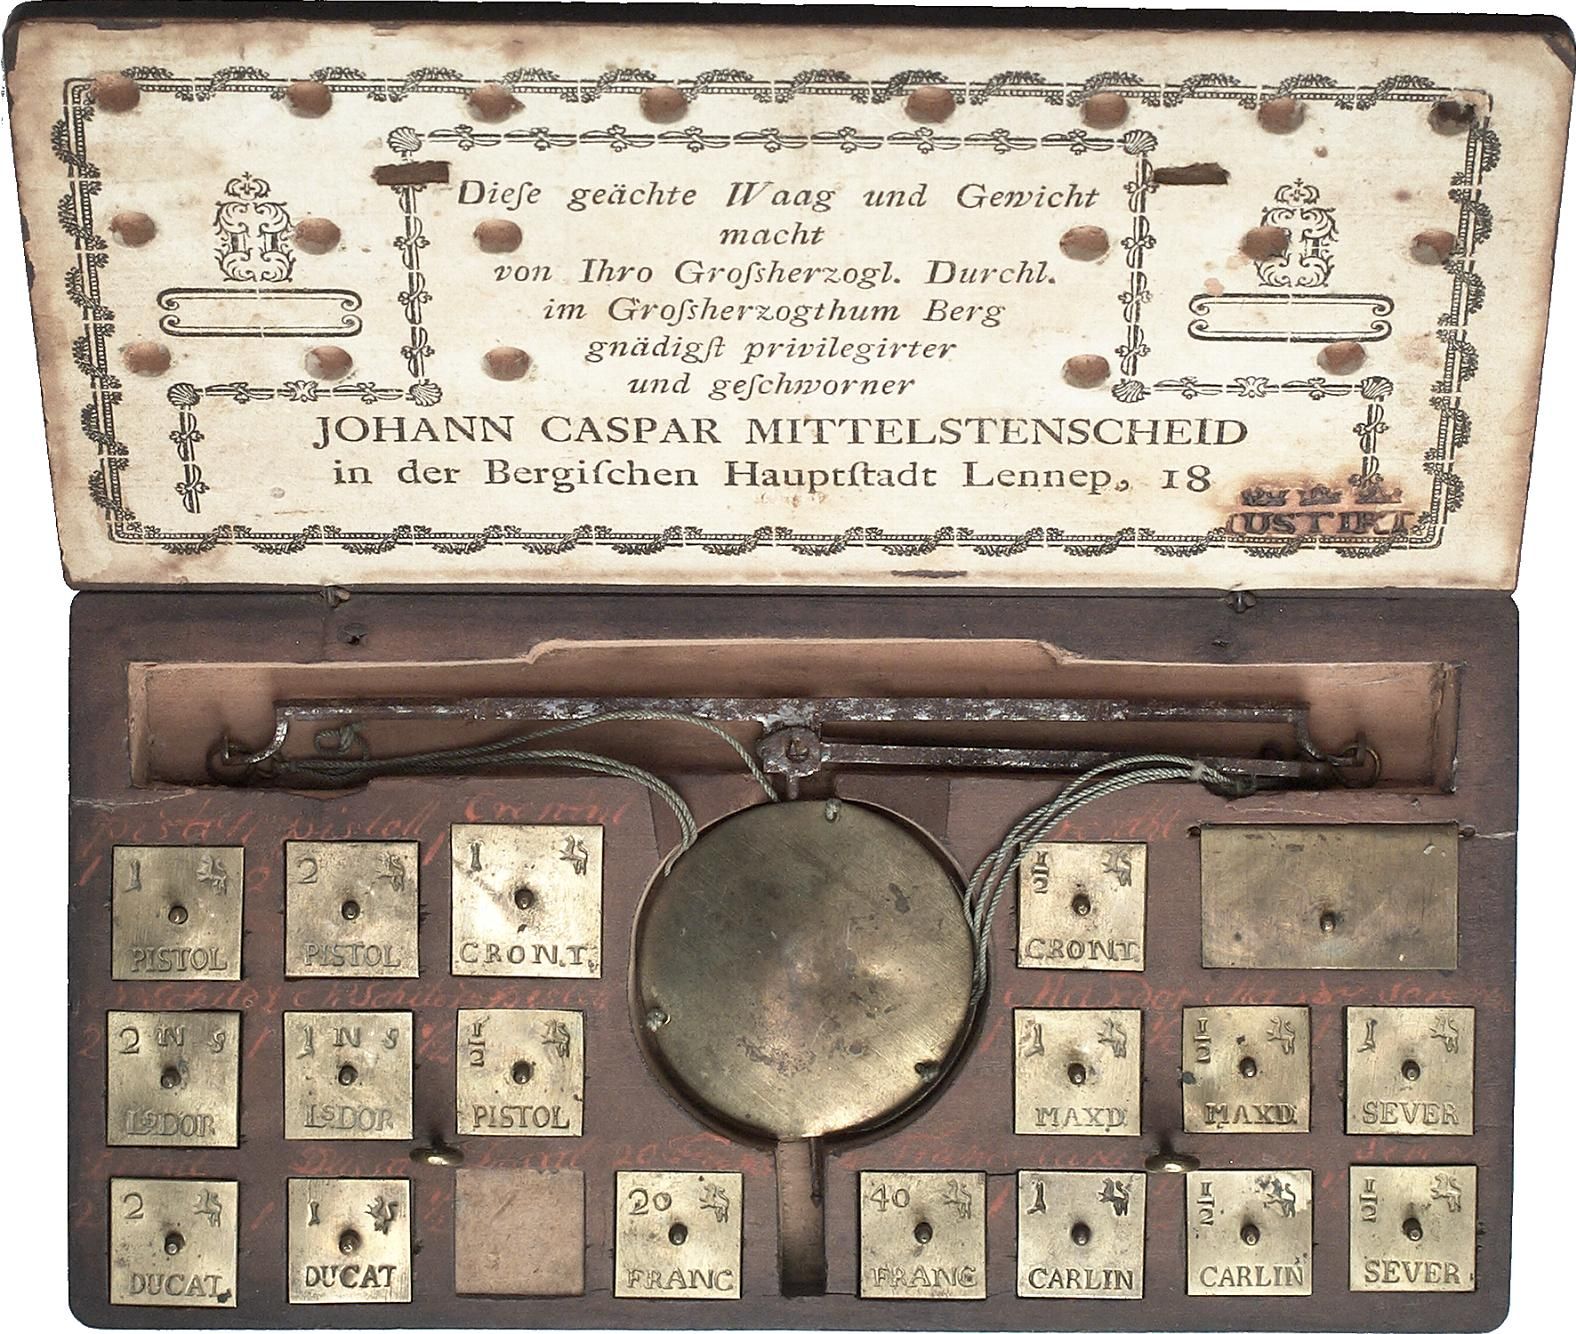 Dieſe geächte Waag und Gewicht
macht
von Ihro Groſsherzogl. Durchl.
im Groſsherzogthum Berg
gnädigſt privilegirter
und geſchworner
JOHANN CASPAR MITTELSTENSCHEID
in der Bergiſchen Hauptſtadt Lennep, 18
1
PISTOL
2
PISTOL
1
CRON.T.
1/2
CRONT.
2 N 9
LSDOR
1 N 9
LSDOR
1/2
PISTOL
1
MAXD
1/2
MAXD
1
SEVER
2
DUCAT
1
DUCAT
20
FRANC
40
FRANC
1
CARLIN
1/2
CARLIN
1/2
SEVER